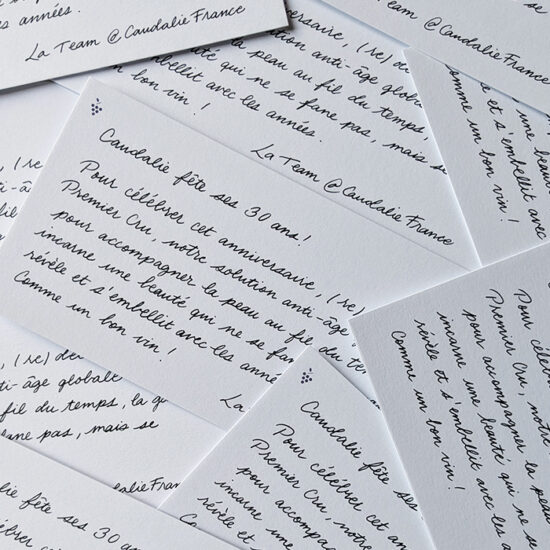 es années.
La Team @ Caudalie France
anniversaire, (re) dé
solution anti-âge globa
la peau au fil du temps,
uté qui ne se fane pas, mais se
embellit avec les années.
un bon vin !
La Team @ Caudalie France
Caudalie France
une beauté
et s'embellit
Comme un bon vin !
Caudalie fête ses 30 ans!
Pour célébrer cet anniversaire, (re)
Premier Cru, notre solution anti-âge
pour accompagner la peau au fil du
incarne une beauté qui ne se fane
révèle et s'embellit avec les années
Comme un bon vin !
La Te
(re) dé
(re) déc
ti-âge globale
fil du temps, la qu
ane pas, mais se
audalie France
fête ses 30 ans
Caudalie fête ses
Pour célébrer cet an
Premier Cru, notre
pour accompagne
incarne une b
révèle et s'em
Comme un b
Pour
Premier Cru,
pour accompagner
incarne une beauté qui ne se
révèle et s'embellit avec les a
Comme un bon vin !